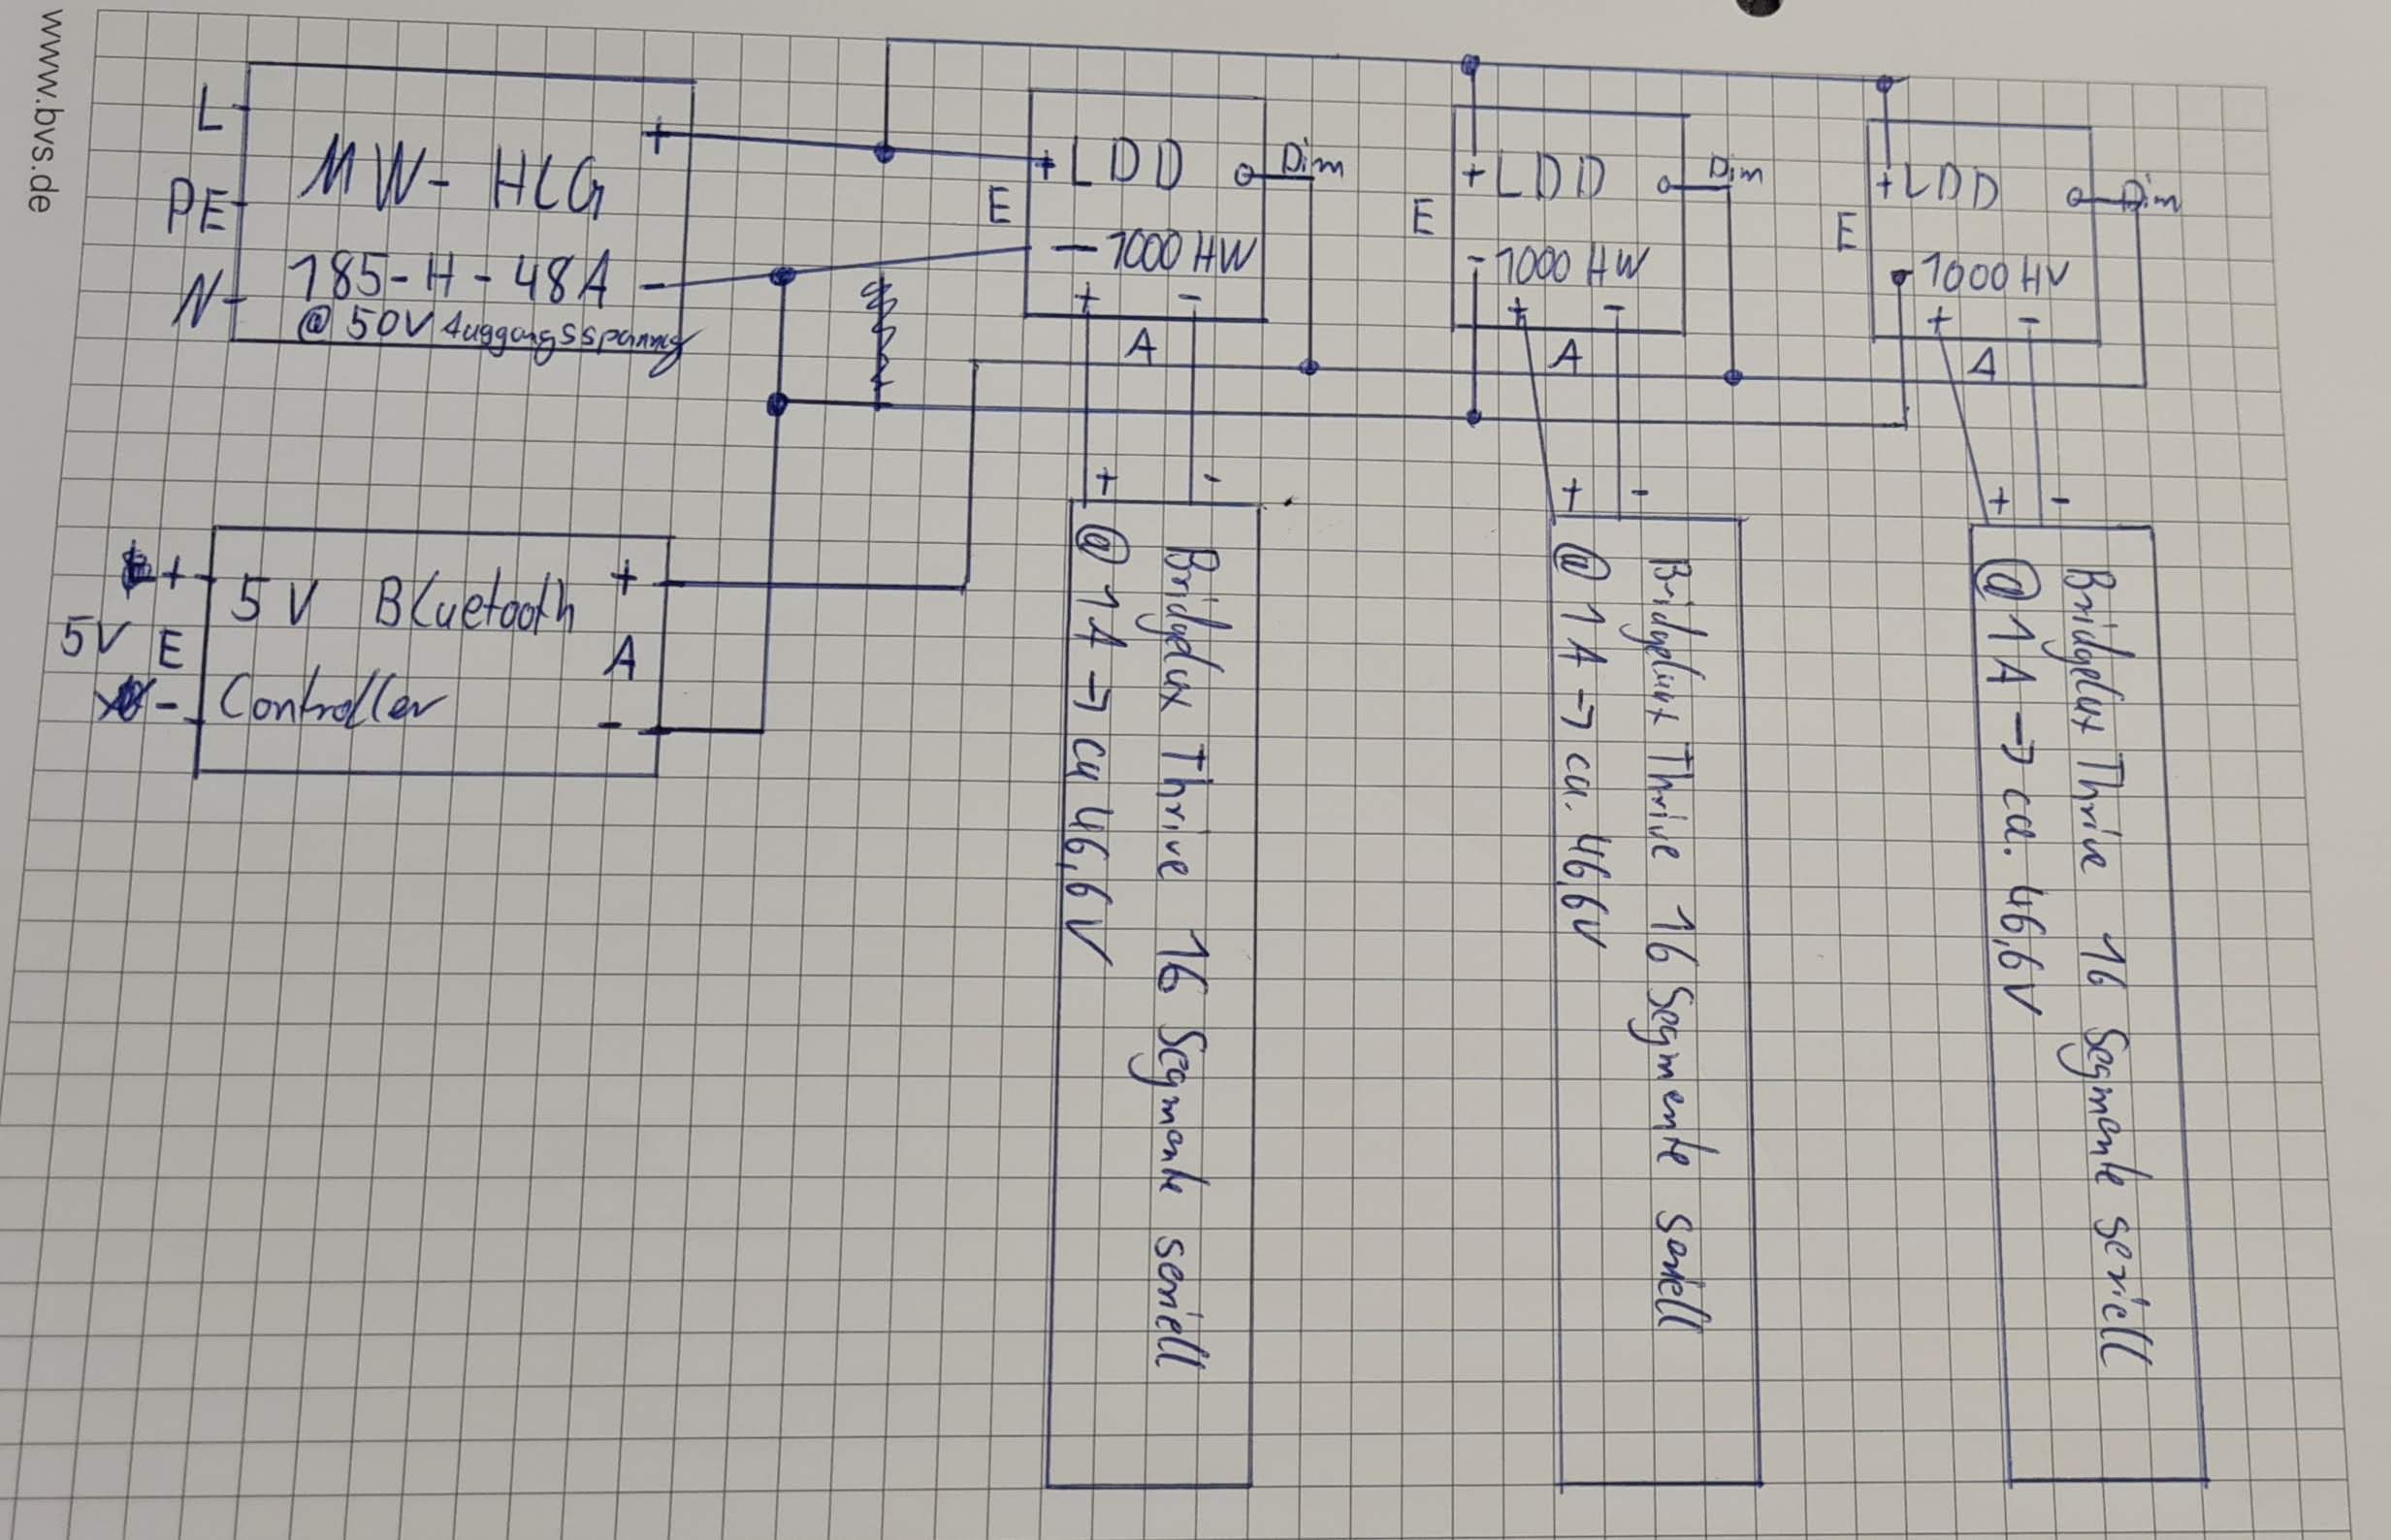 www.bvs.de
L
PE
N
MW- HLG
185-H-48A
@ 50V Auggangsspannug
+
-
E
+LDD
-1000 HW
Dim
+ -
A
E
+LDD
-1000 HW
Dim
+ -
A
E
+LDD
1000 HV
Dim
+ -
A
5V E
+
-
5V Bluetooth
Controller
+
A
-
+ -
Bridgelux Thrive 16 Segmente seriell
@ 1A → ca 46,6V
+ -
Bridgelux Thrive 16 Segmente seriell
@ 1A → ca. 46,6V
+ -
Bridgelux Thrive 16 Segmente seriell
@ 1A → ca. 46,6V